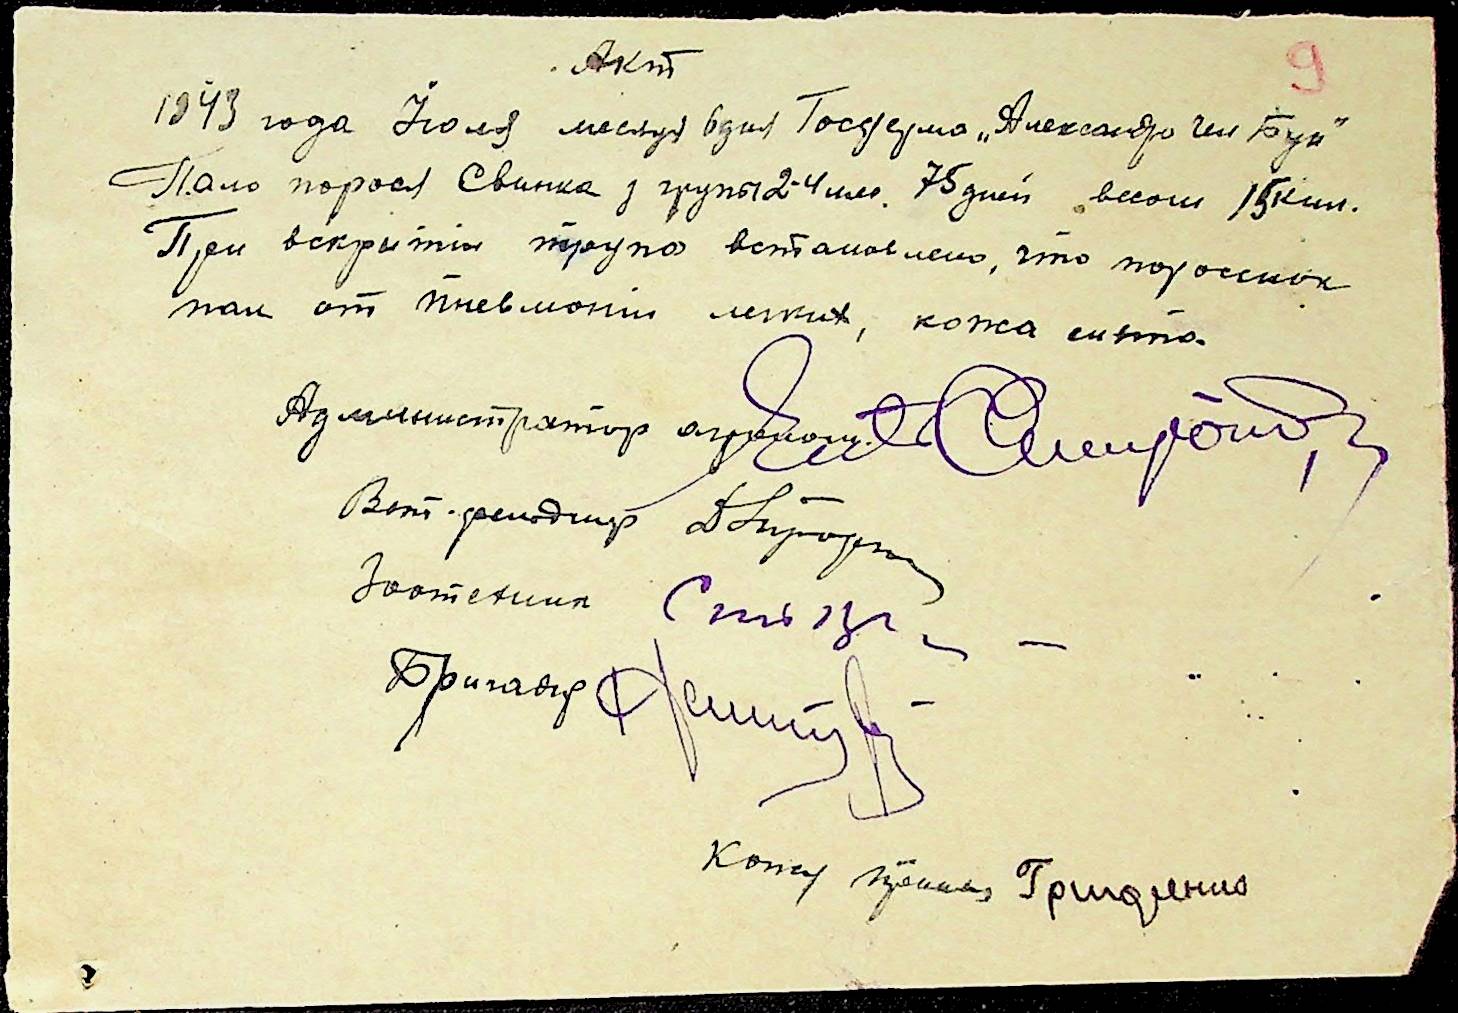 9
Акт
1943 года Июля месяца 6 дня Госферма „Александро чел Бун"
Пало порося Свинка з групы 2-4 мес. 75 дней весом 15 кил.
При вскрытіи трупа встановлено, что поросенок
пал от пневмоніи легких, кожа снята.
Администратор агроном.
Вет. фельдшер
Зоотехник
Бригадир
Кожу принял